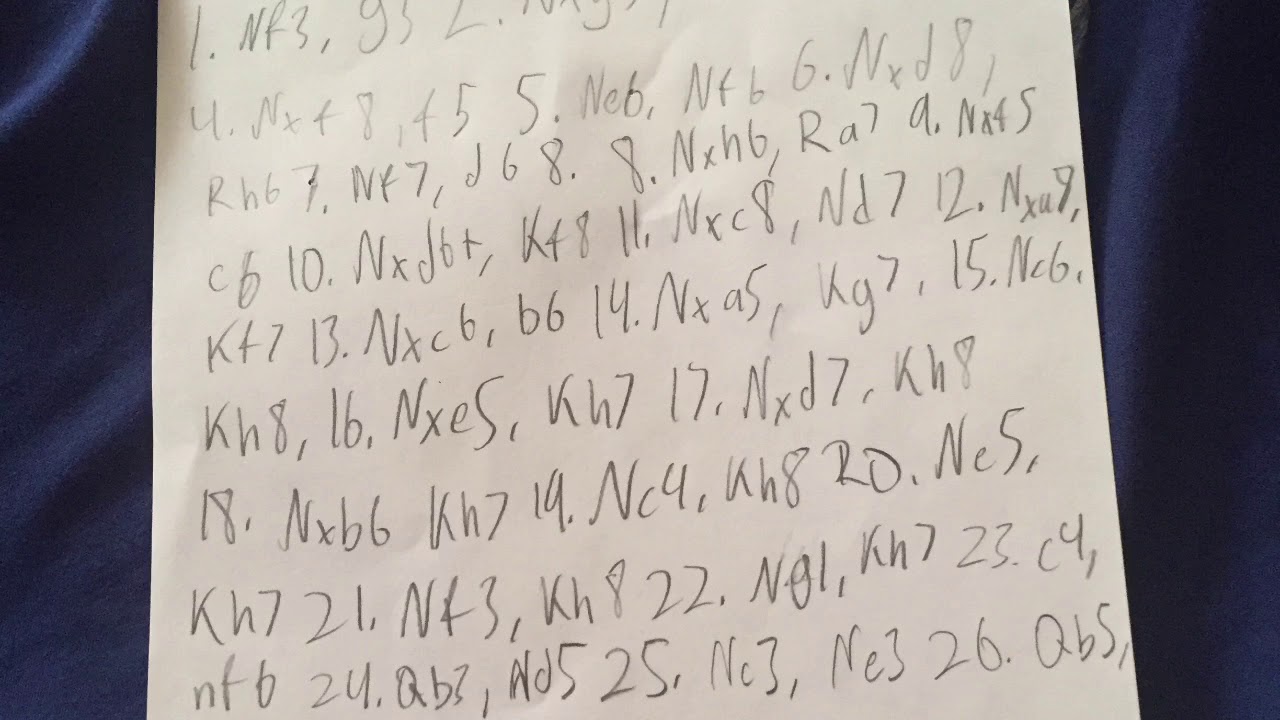 1. Nf3, g5 2. Nxg5,
4. Nxf8, f5 5. Ne6, Nf6 6. Nxd8,
Rh6 7. Nf7, d6 8. 8. Nxh6, Ra7 9. Nxf5
c6 10. Nxd6+, Kf8 11. Nxc8, Nd7 12. Nxa7,
Kf7 13. Nxc6, b6 14. Nxa5, Kg7, 15. Nc6,
Kh8, 16. Nxe5, Kh7 17. Nxd7, Kh8
18. Nxb6 Kh7 19. Nc4, Kh8 20. Ne5,
Kh7 21. Nf3, Kh8 22. Ng1, Kh7 23. c4,
nf6 24. Qb3, Nd5 25. Nc3, Ne3 26. Qb5,